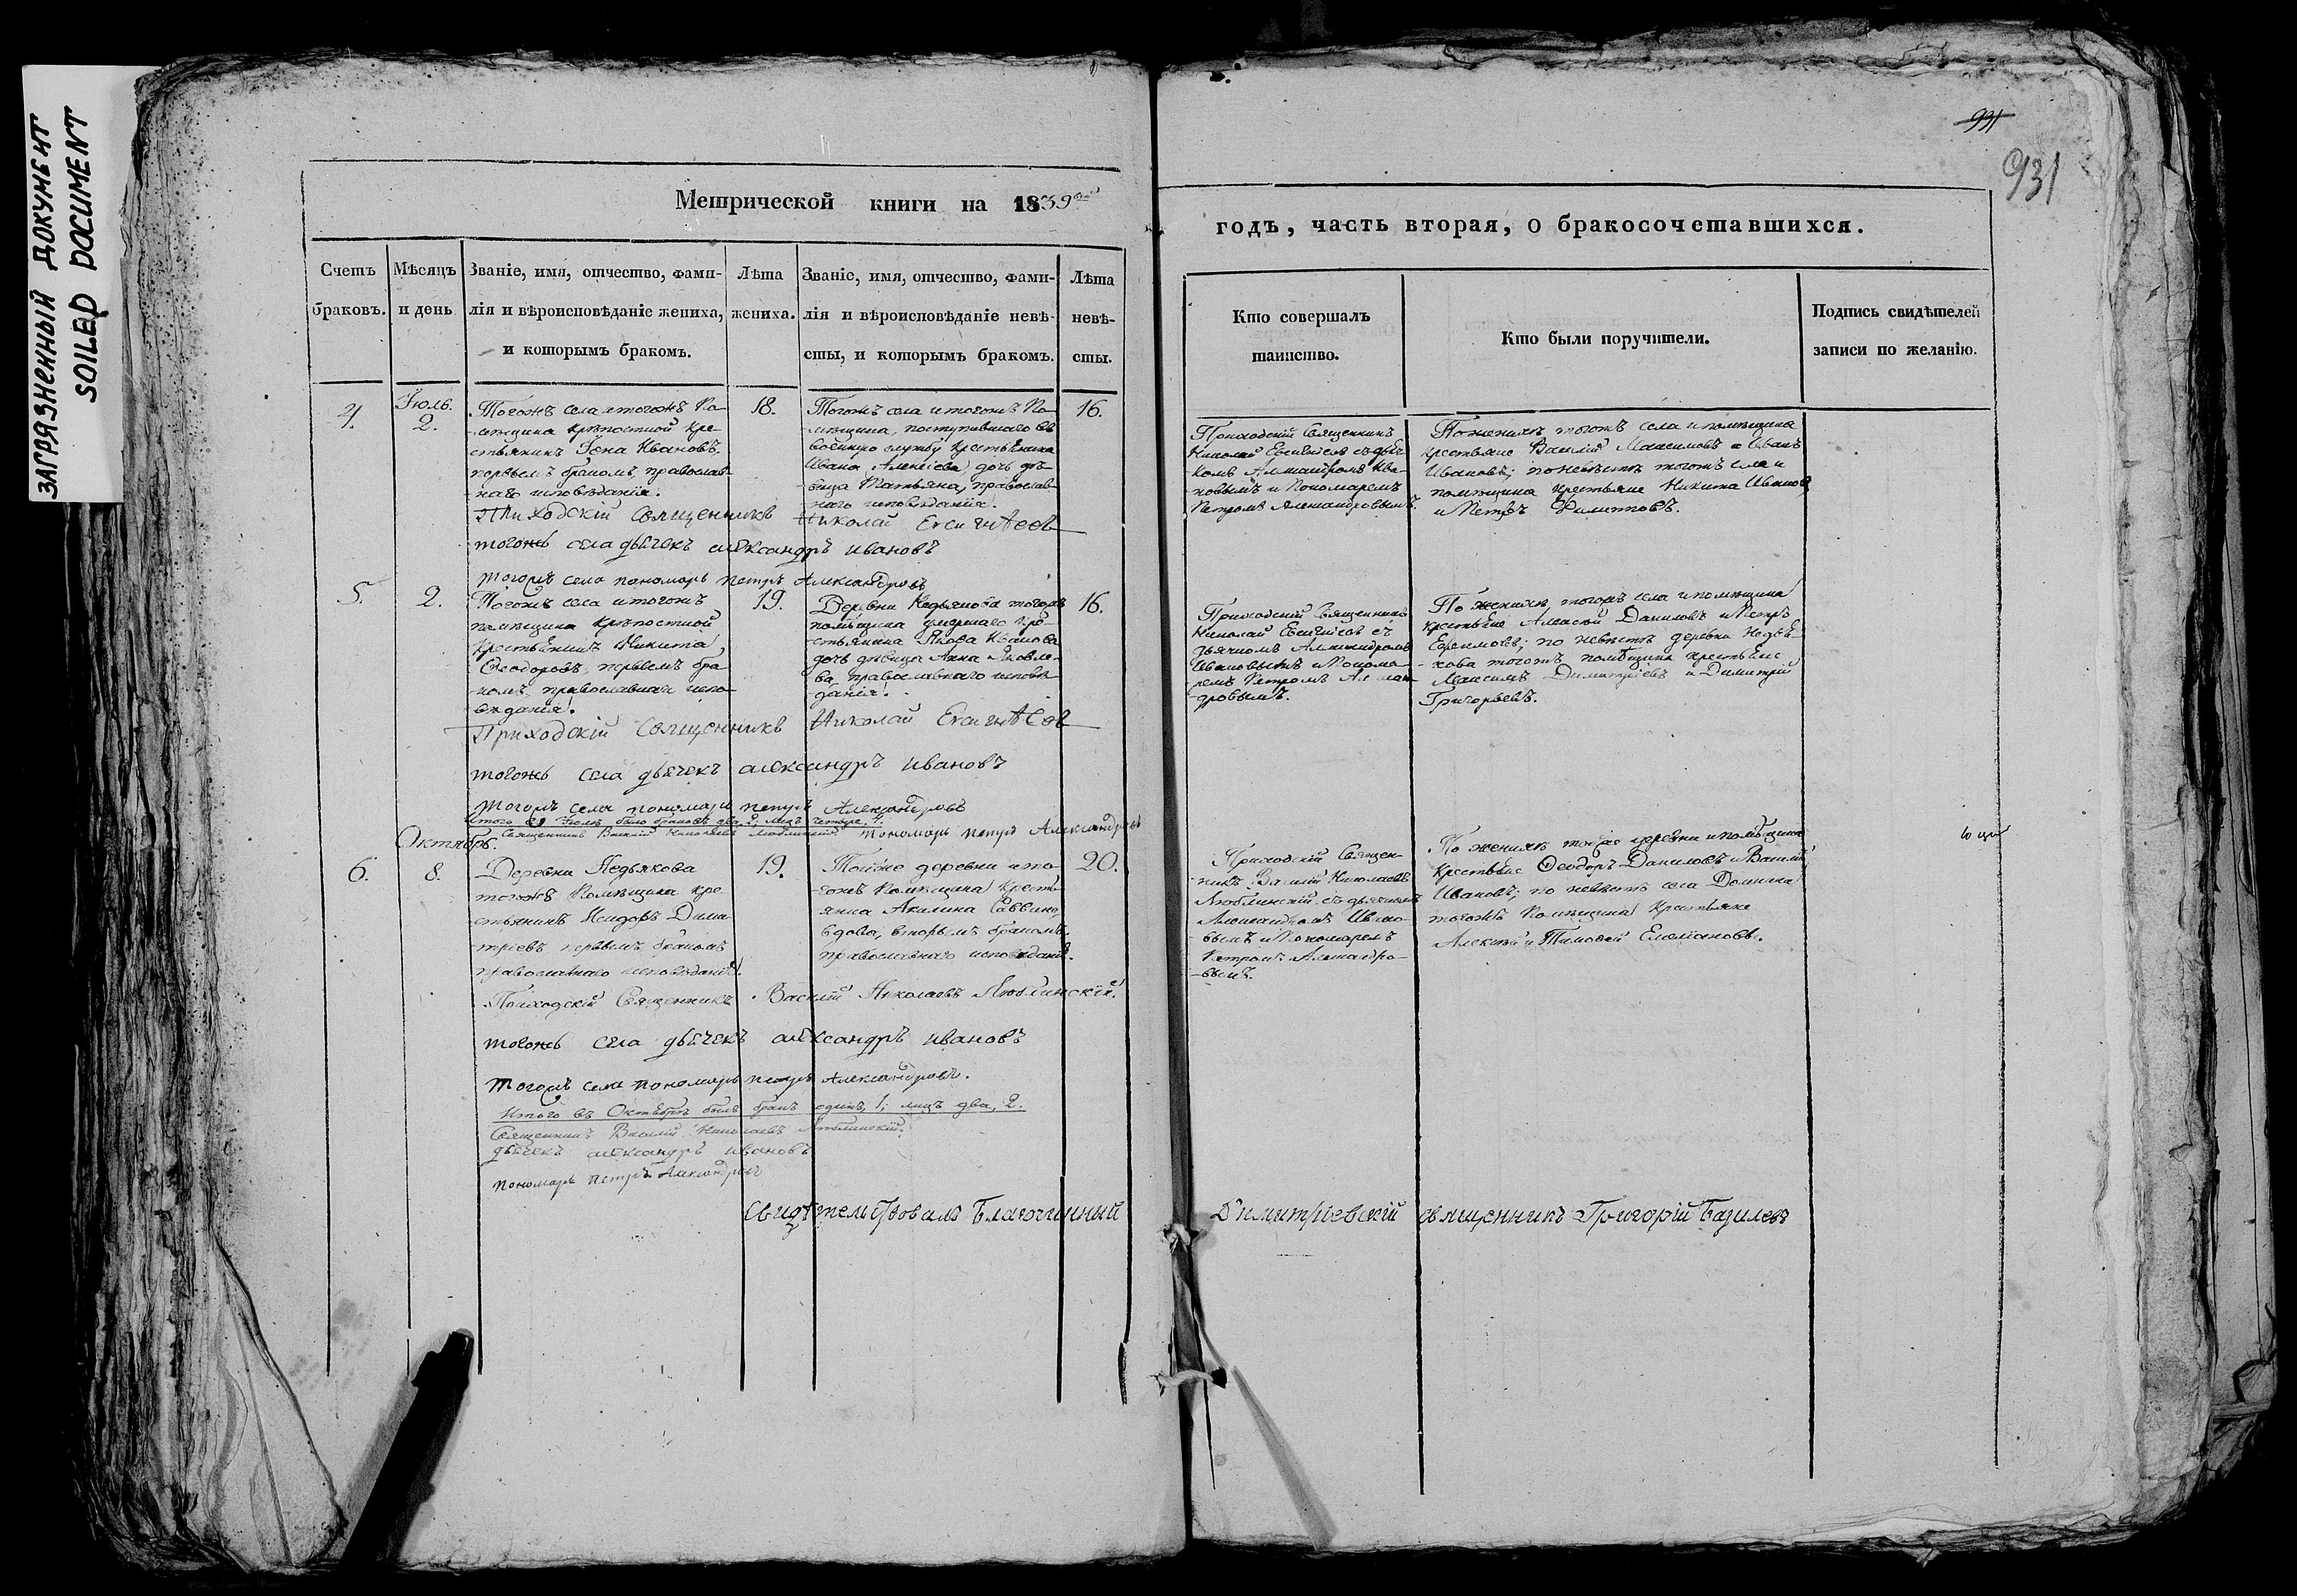 ЗАГРЯЗНЕННЫЙ ДОКУМЕНТ
SOILED DOCUMENT
931
931
Метрической книги на 1839
годъ, часть вторая, о бракосочетавшихся.
Счетъ
браковъ.
Мѣсяцъ
и день
Званіе, имя, отчество, фами-
лія и вѣроисповѣданіе жениха,
и которымъ бракомъ.
Лѣта
жениха.
Званіе, имя, отчество, фами-
лія и вѣроисповѣданіе невѣ-
сты, и которымъ бракомъ.
Лѣта
невѣ-
сты.
Кто совершалъ
таинство.
Кто были поручители.
Подпись свидѣтелей
записи по желанію.
4.
Іюль.
2.
Тогожъ села и тогожъ По-
мѣщика крѣпостной кре-
стьянинъ Іона Ивановъ,
первымъ бракомъ, православ-
наго исповѣданія.
18.
Тогожъ села и тогожъ По-
мѣщика, поступившаго въ
военную службу крестьянина
Ивана Алексіева дочь дѣ-
вица Татьяна, православ-
наго исповѣданія.
16.
Приходскій Священникъ
Николай Евсигнѣевъ съ дьяч-
комъ Александромъ Ива-
новымъ и Пономаремъ
Петромъ Александровымъ.
По женихѣ тогожъ села и помѣщика
крестьяне Василій Максимовъ и Иванъ
Ивановъ; по невѣстѣ тогожъ села и
помѣщика крестьяне Никита Ивановъ
и Петръ Филипповъ.
Приходскій Священникъ Николай Евсигнѣевъ
тогожъ села дьячекъ александръ ивановъ
тогожъ села пономарь петръ Александровъ
5.
2.
Тогожъ села и тогожъ
помѣщика крѣпостной
крестьянинъ Никита
Ѳеодоровъ, первымъ бра-
комъ, православнаго испо-
вѣданія.
19.
Деревни Недьякова тогожъ
помѣщика умершаго кре-
стьянина Якова Иванова
дочь дѣвица Анна Яковле-
ва, православнаго исповѣ-
данія.
16.
Приходскій Священникъ
Николай Евсигнѣевъ съ
дьячкомъ Александромъ
Ивановымъ и Понома-
ремъ Петромъ Алексан-
дровымъ.
По женихѣ, тогожъ села и помѣщика
крестьяне Алексѣй Даниловъ и Петръ
Ефимовъ; по невѣстѣ деревни Недья-
кова тогожъ помѣщика крестьяне
Максимъ Димитріевъ и Димитрій
Григорьевъ.
Приходскій Священникъ Николай Евсигнѣевъ
тогожъ села дьячекъ александръ ивановъ
тогожъ села пономарь петръ Александровъ
Итого въ Іюлѣ было браковъ два, 2; лицъ четыре, 4.
Священникъ Василій Николаевъ Люблинскій Пономарь петръ Александровъ
Октябрь.
6.
8.
Деревни Недьякова
тогожъ Помѣщика кре-
стьянинъ Исидоръ Дими-
тріевъ первымъ бракомъ
православнаго исповѣданія.
19.
Тойже деревни и то-
гожъ Помѣщика крестья-
янка Акилина Саввина,
вдова, вторымъ бракомъ
православнаго исповѣданія.
20.
Приходскій Священ-
никъ Василій Николаевъ
Люблинскій съ дьячкомъ
Александромъ Ивано-
вымъ и Пономаремъ
Петромъ Алексадро-
вымъ.
По женихѣ тойже деревни и помѣщика
крестьяне Ѳеодоръ Даниловъ и Василій
Ивановъ; по невѣстѣ села
тогожъ Помѣщика Крестьяне
Алексѣй и Тимоѳей Емеліановы.
Приходскій Священникъ Василій Николаевъ Люблинскій.
тогожъ села дьячекъ александръ ивановъ
тогожъ села пономарь петръ Александровъ.
Итого въ Октябрѣ былъ бракъ одинъ, 1; лицъ два, 2.
Священникъ Василій Николаевъ Люблинскій.
дьячекъ александръ ивановъ
пономарь петръ Александровъ
Свидѣтельствовалъ Благочинный Димитріевскій священникъ Григорій Базилевъ